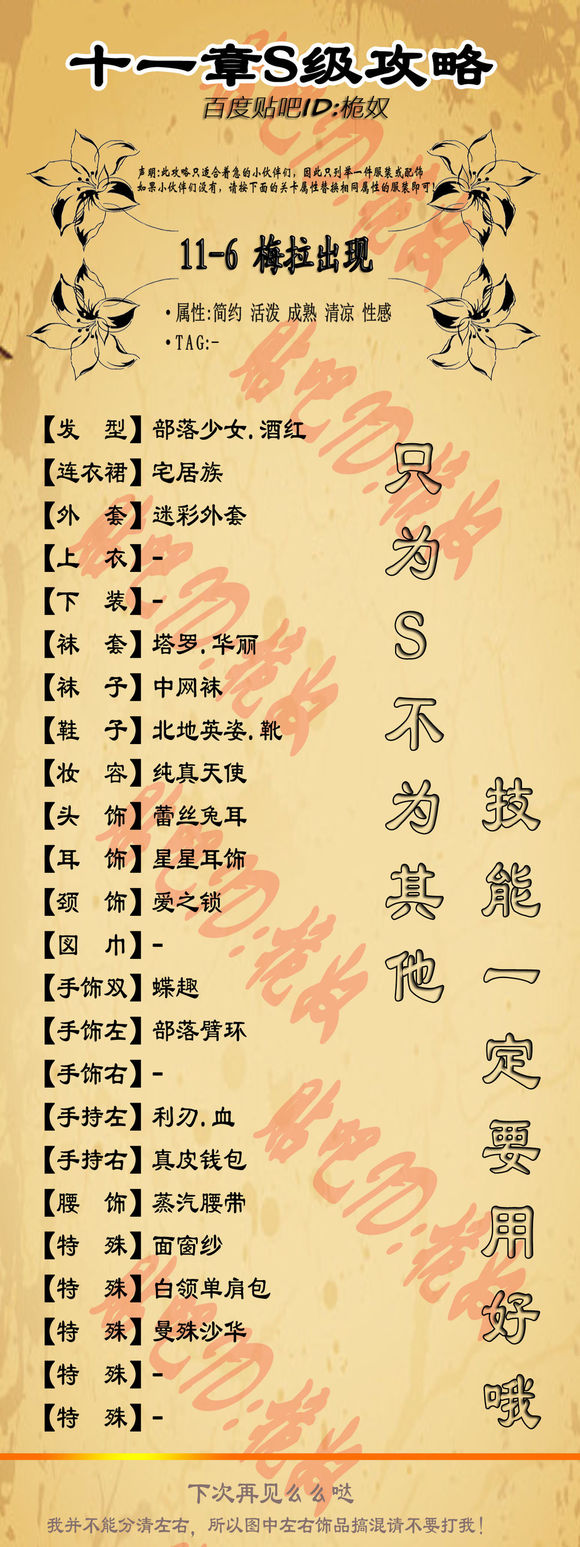 十一章S级攻略
百度贴吧ID:桅奴
声明:此攻略只适合着急的小伙伴们，因此只列举一件服装或配饰
如果小伙伴们没有，请按下面的关卡属性替换相同属性的服装即可!
11-6 梅拉出现
·属性:简约 活泼 成熟 清凉 性感
·TAG:-
【发 型】部落少女.酒红
【连衣裙】宅居族
【外 套】迷彩外套
【上 衣】-
【下 装】-
【袜 套】塔罗.华丽
【袜 子】中网袜
【鞋 子】北地英姿.靴
【妆 容】纯真天使
【头 饰】蕾丝兔耳
【耳 饰】星星耳饰
【颈 饰】爱之锁
【围 巾】-
【手饰双】蝶趣
【手饰左】部落臂环
【手饰右】-
【手持左】利刃.血
【手持右】真皮钱包
【腰 饰】蒸汽腰带
【特 殊】面窗纱
【特 殊】白领单肩包
【特 殊】曼殊沙华
【特 殊】-
【特 殊】-
只为S不为其他
技能一定要用好哦
贴吧ID:桅奴
贴吧ID:桅奴
贴吧ID:桅奴
贴吧ID:桅奴
贴吧ID:桅奴
贴吧ID:桅奴
下次再见么么哒
我并不能分清左右，所以图中左右饰品搞混请不要打我！